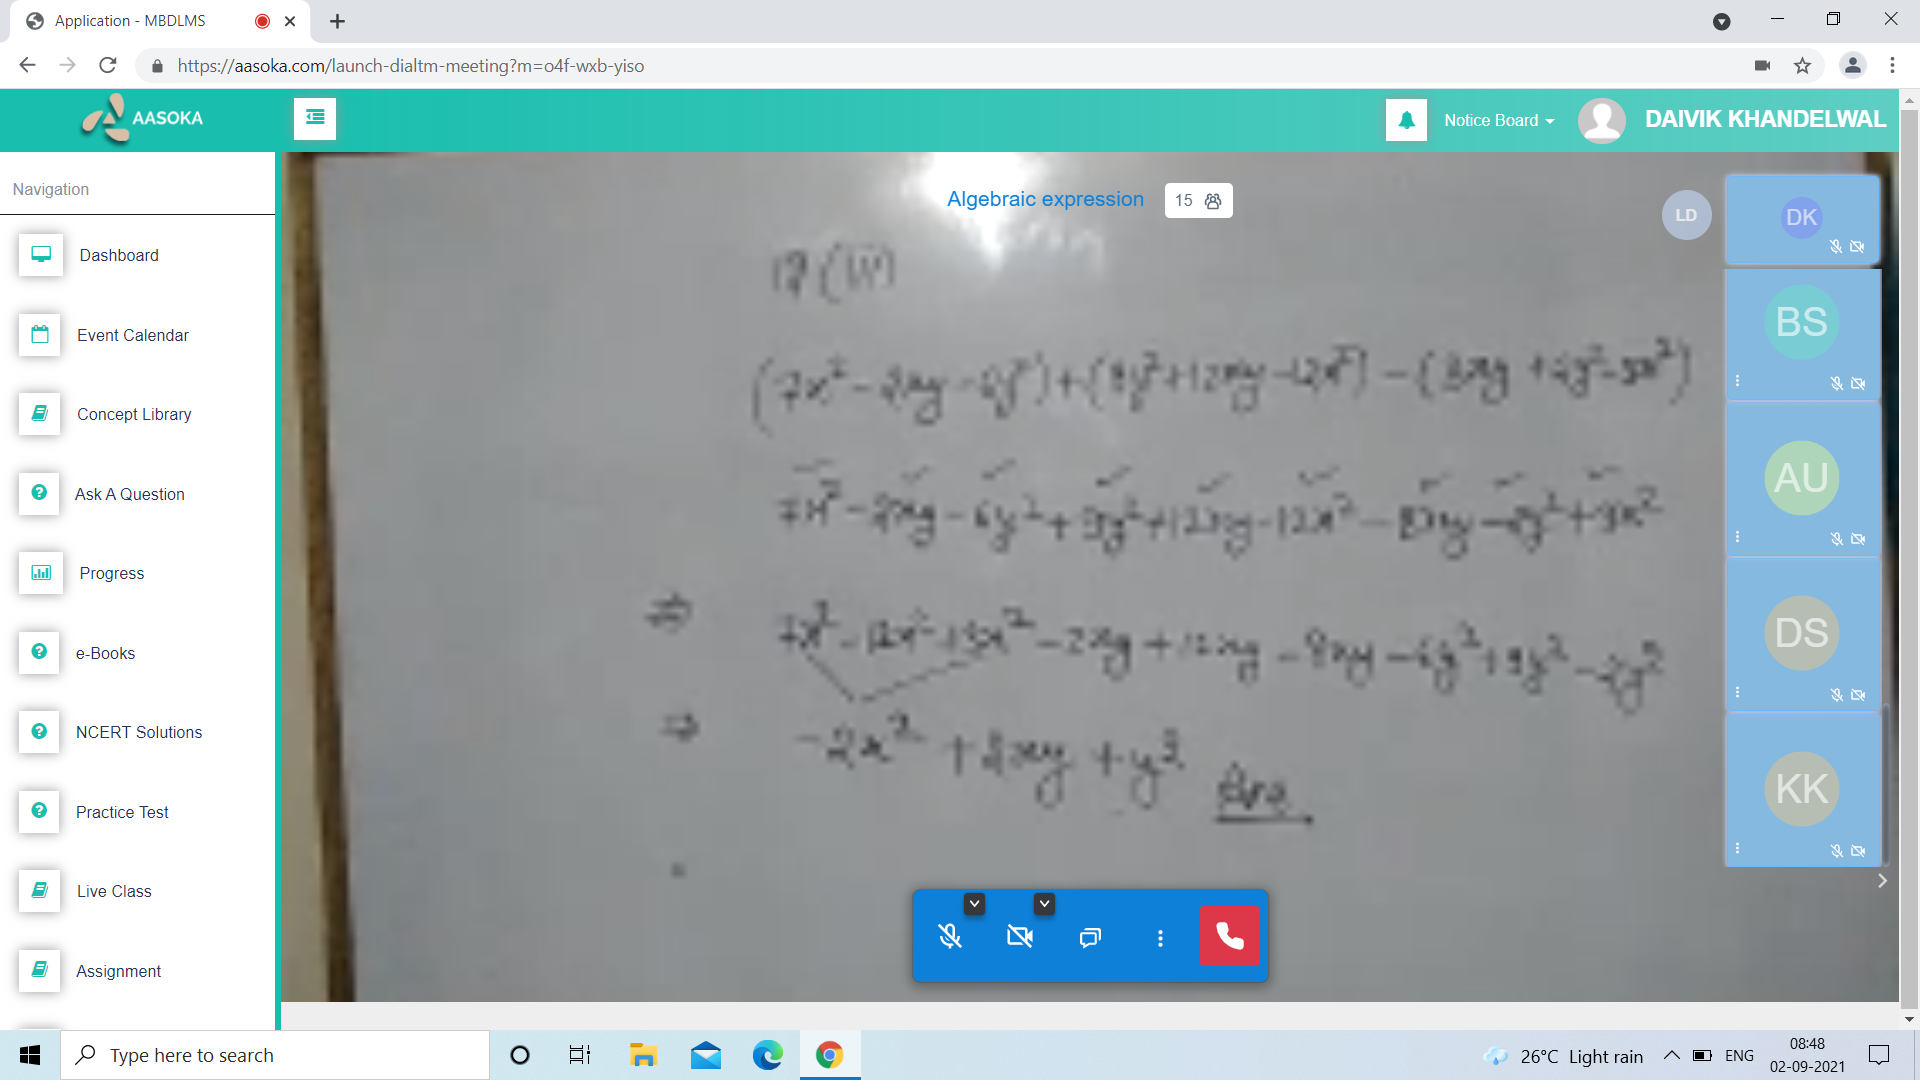 Application - MBDLMS
https://aasoka.com/launch-dialtm-meeting?m=o4f-wxb-yiso
AASOKA
Notice Board
DAIVIK KHANDELWAL
Navigation
Dashboard
Event Calendar
Concept Library
Ask A Question
Progress
e-Books
NCERT Solutions
Practice Test
Live Class
Assignment
Algebraic expression
15
LD
DK
BS
AU
DS
KK
7x² - 12x² + 3x² - 2xy + 12xy - 8xy - 6y² + 9y² - 2y²
⇒ -2x² + 2xy + y² Ans
Type here to search
26°C Light rain
ENG
08:48
02-09-2021